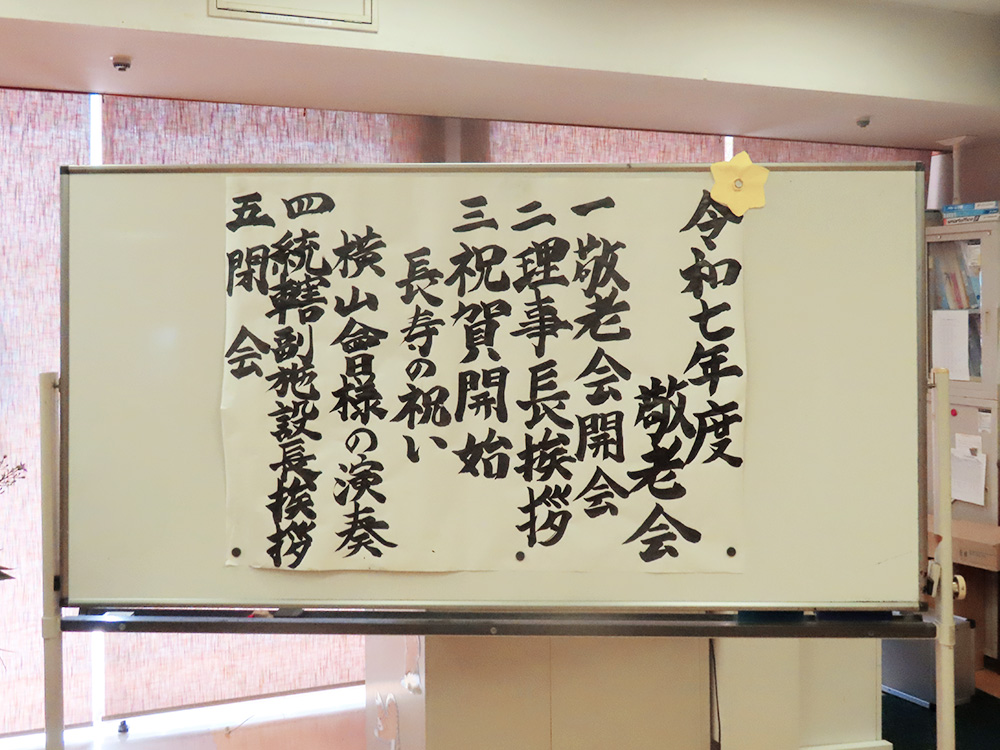 令和七年度
敬老会
一 敬老会開会
二 理事長挨拶
三 祝賀開始
長寿の祝い
横山會様の演奏
四 統轄副施設長挨拶
五 閉会